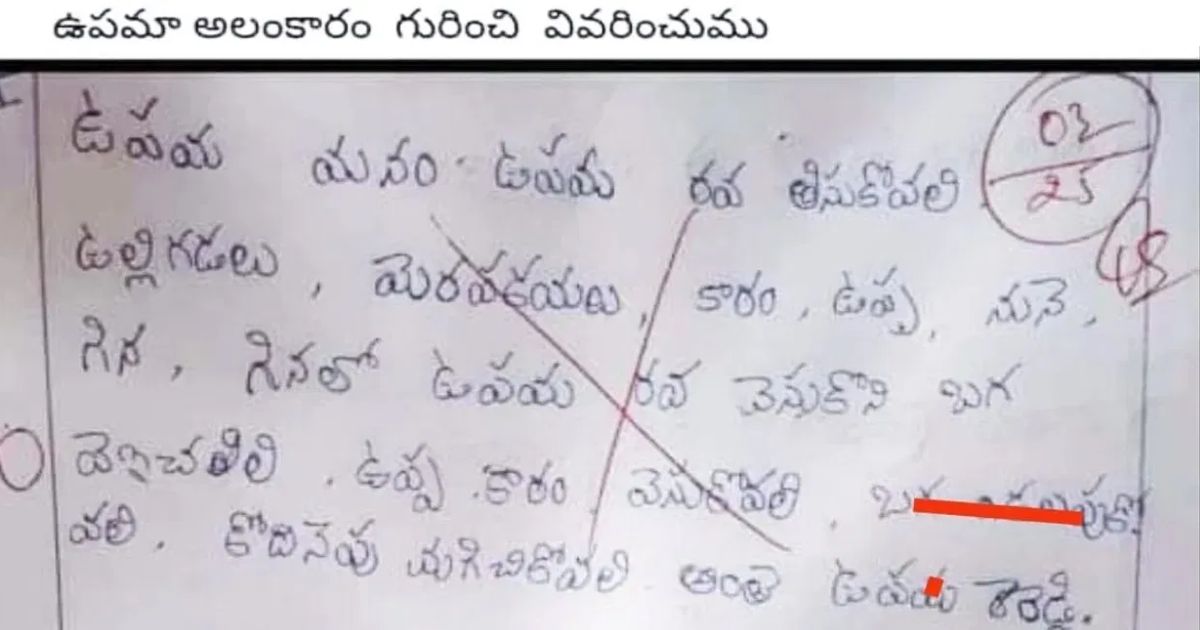 ఉపమా అలంకారం గురించి వివరించుము
ఉపమ యనం ఉపమ రవ తిసుకోవలి
03
25
ఉల్లిగడలు, మెరపకయలు, కారం, ఉప్ప, నునె,
గిన, గినలో ఉపమ రవ వెసుకొని బగ
వెఇంచతిలి. ఉప్ప కారం వెసుకోవలి.
వలి. కోదినెపు మగిచికోవలి అంతె ఉపమ రెరెడ్డి.